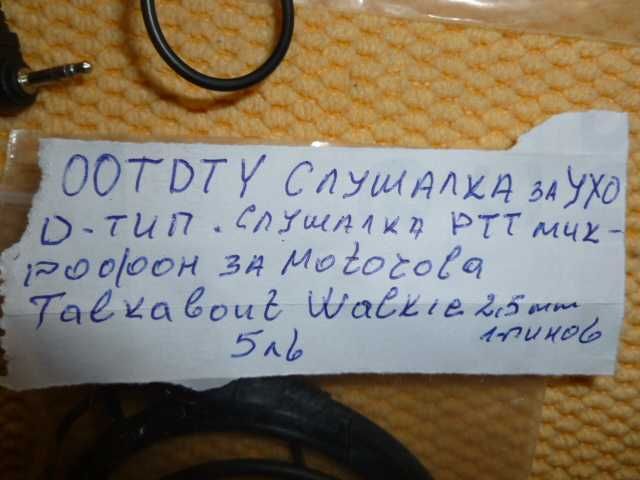 OOTDTY СЛУШАЛКА ЗА УХО
D-ТИП. СЛУШАЛКА PTT МИК-
РОФОН ЗА Motorola
Talkabout Walkie 2,5mm
5лв 1пинов